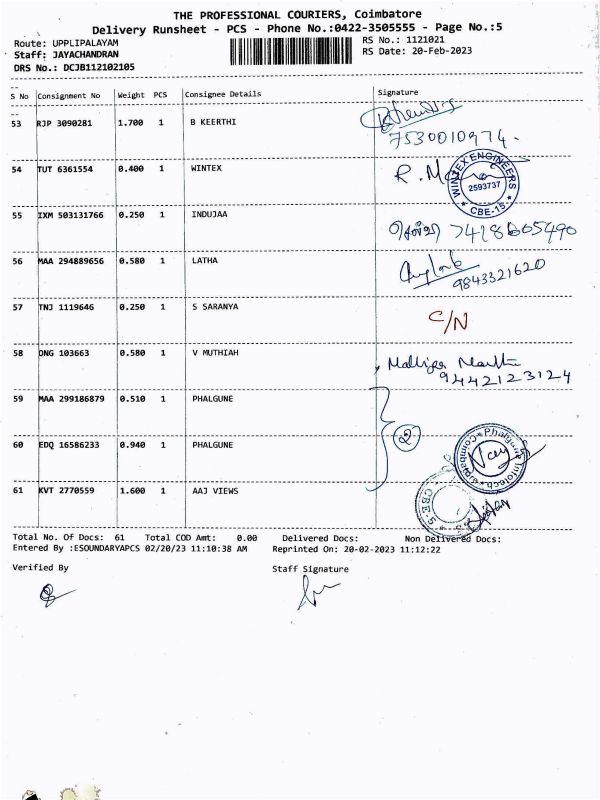 THE PROFESSIONAL COURIERS, Coimbatore
Delivery Runsheet - PCS - Phone No.:0422-3505555 - Page No.:5
Route: UPPLIPALAYAM RS No.: 1121021
Staff: JAYACHANDRAN RS Date: 20-Feb-2023
DRS No.: DCJB112102105
S No Consignment No Weight PCS Consignee Details Signature
53 RJP 3090281 1.700 1 B KEERTHI
7530010974.
54 TUT 6361554 0.400 1 WINTEX R.M
WINTEX ENGINEERS 2593737 CBE-15
55 IXM 503131766 0.250 1 INDUJAA
56 MAA 294889656 0.580 1 LATHA
9843321620
57 TNJ 1119646 0.250 1 S SARANYA C/N
58 ONG 103663 0.580 1 V MUTHIAH
9442123124
59 MAA 299186879 0.510 1 PHALGUNE
2
60 EDQ 16586233 0.940 1 PHALGUNE
Phalgune Infotech Coimbatore
61 KVT 2770559 1.600 1 AAJ VIEWS
CBE-
Total No. Of Docs: 61 Total COD Amt: 0.00 Delivered Docs: Non Delivered Docs:
Entered By :ESOUNDARYAPCS 02/20/23 11:10:38 AM Reprinted On: 20-02-2023 11:12:22
Verified By Staff Signature